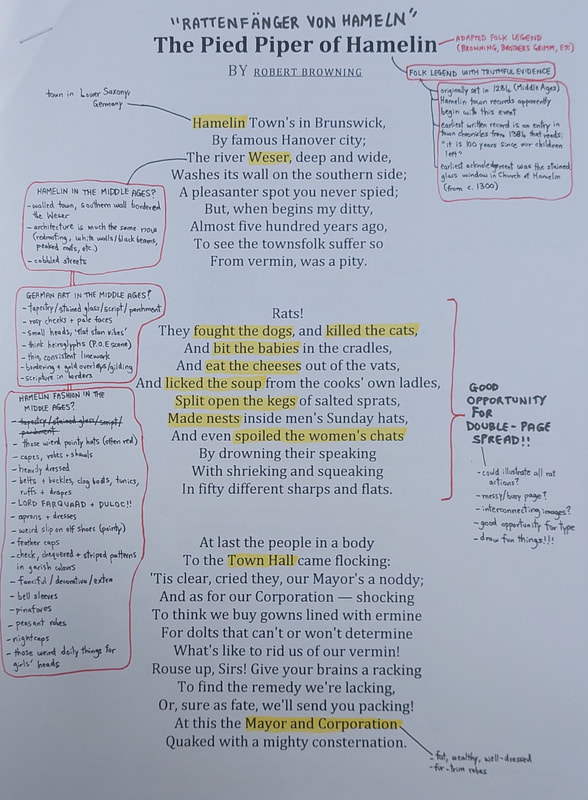 "RATTENFÄNGER VON HAMELN"
The Pied Piper of Hamelin
BY ROBERT BROWNING
ADAPTED FOLK LEGEND
(BROWNING, BROTHERS GRIMM, ETC)
FOLK LEGEND WITH TRUTHFUL EVIDENCE
originally set in 1284 (Middle Ages)
Hamelin town records apparently
begin with this event
earliest written record is an entry in
town chronicles from 1384 that reads:
"it is 100 years since our children
left"
earliest acknowledgment was the stained
glass window in Church of Hamelin
(from c. 1300)
town in Lower Saxony,
Germany
Hamelin Town's in Brunswick,
By famous Hanover city;
The river Weser, deep and wide,
Washes its wall on the southern side;
A pleasanter spot you never spied;
But, when begins my ditty,
Almost five hundred years ago,
To see the townsfolk suffer so
From vermin, was a pity.
HAMELIN IN THE MIDDLE AGES?
- walled town, southern wall bordered
the Weser
- architecture is much the same now
(red roofing, white walls/black beams,
peaked roofs, etc.)
- cobbled streets
GERMAN ART IN THE MIDDLE AGES?
- tapestry/stained glass/script/parchment
- rosy cheeks + pale faces
- small heads, 'flat stan vibes'
- think heiroglyphs (P.O.E scene)
- thin, consistent linework
- bordering + gold overlays/gilding
- scripture in borders
HAMELIN FASHION IN THE
MIDDLE AGES?
- tapestry/stained glass/script/
parchment
- those weird pointy hats (often red)
- capes, robes + shawls
- heavily dressed
- belts + buckles, clog boots, tunics,
ruffs + drapes
- LORD FARQUAAD + DULOC!!
- aprons + dresses
- weird slip on elf shoes (pointy)
- feather caps
- check, chequered + striped patterns
in garish colours
- fanciful/decorative/extra
- bell sleeves
- pinafores
- peasant robes
- nightcaps
- those weird doily things for
girls' heads
Rats!
They fought the dogs, and killed the cats,
And bit the babies in the cradles,
And eat the cheeses out of the vats,
And licked the soup from the cooks' own ladles,
Split open the kegs of salted sprats,
Made nests inside men's Sunday hats,
And even spoiled the women's chats
By drowning their speaking
With shrieking and squeaking
In fifty different sharps and flats.
GOOD
OPPORTUNITY
FOR
DOUBLE-PAGE
SPREAD!!
- could illustrate all rat
actions?
- messy/busy page?
- interconnecting images?
- good opportunity for type
- draw fun things!!!
At last the people in a body
To the Town Hall came flocking:
'Tis clear, cried they, our Mayor's a noddy;
And as for our Corporation — shocking
To think we buy gowns lined with ermine
For dolts that can't or won't determine
What's like to rid us of our vermin!
Rouse up, Sirs! Give your brains a racking
To find the remedy we're lacking,
Or, sure as fate, we'll send you packing!
At this the Mayor and Corporation
Quaked with a mighty consternation.
- fat, wealthy, well-dressed
- fur-trim robes